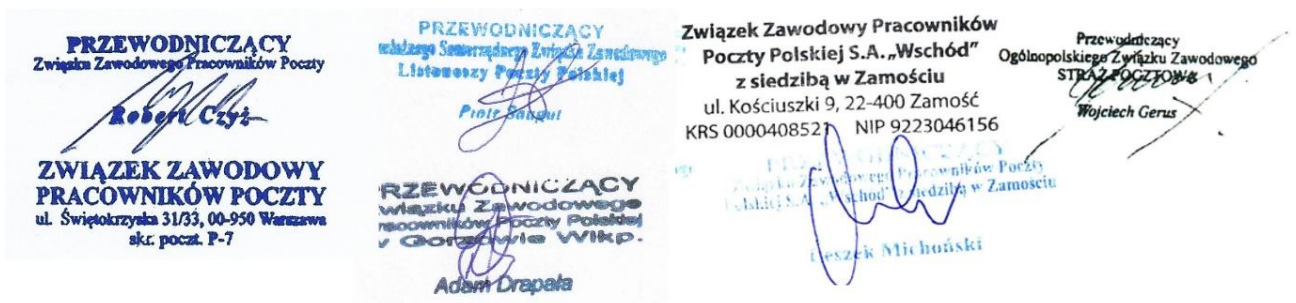 PRZEWODNICZĄCY
Związku Zawodowego Pracowników Poczty
Robert Czyż
ZWIĄZEK ZAWODOWY
PRACOWNIKÓW POCZTY
ul. Świętokrzyska 31/33, 00-950 Warszawa
skr. poczt. P-7
PRZEWODNICZĄCY
Samorządnego Związku Zawodowego
Listonoszy Poczty Polskiej
Piotr
RZEWODNICZĄCY
wiązku Zawodowego
racowników Poczty Polskiej
w Gorzowie Wlkp.
Adam Drapała
Związek Zawodowy Pracowników
Poczty Polskiej S.A. „Wschód”
z siedzibą w Zamościu
ul. Kościuszki 9, 22-400 Zamość
KRS 0000408521 NIP 9223046156
PRZEWODNICZĄCY
Związku Zawodowego Pracowników Poczty
Polskiej S.A. „Wschód” z siedzibą w Zamościu
Leszek Michoński
Przewodniczący
Ogólnopolskiego Związku Zawodowego
STRAŻ POCZTOWA
Wojciech Gerus